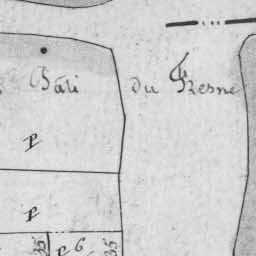 Bâti du Fresne
P
P
35 P 6 35